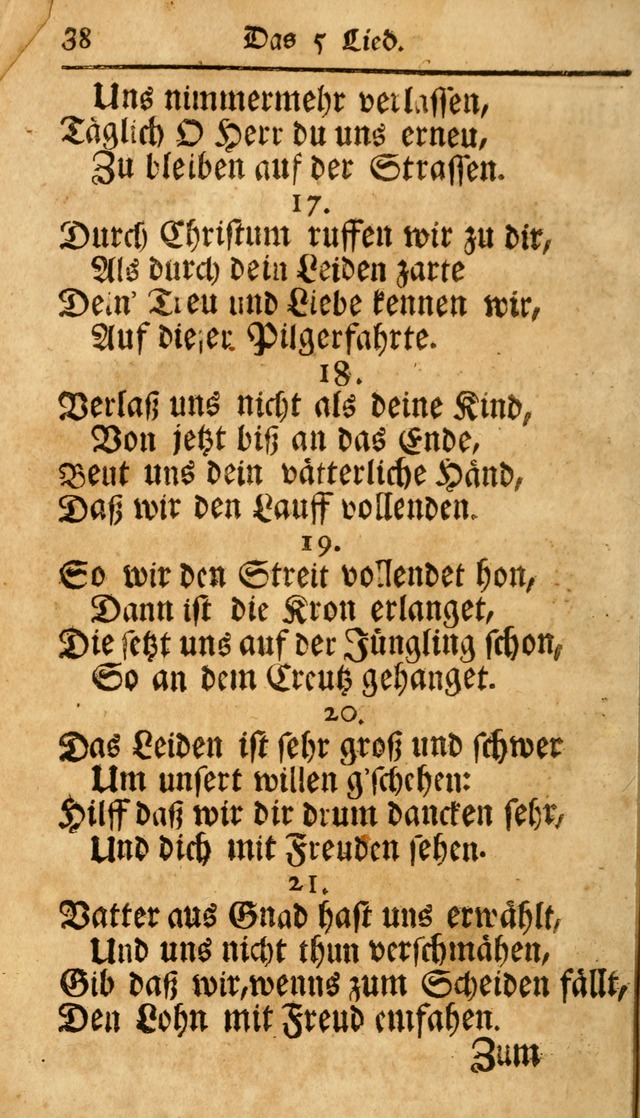 38 Das 5 Lied.
Uns nimmermehr verlassen,
Täglich O Herr du uns erneu,
Zu bleiben auf der Strassen.
17.
Durch Christum ruffen wir zu dir,
Als durch dein Leiden zarte
Dein' Treu und Liebe kennen wir,
Auf dieser Pilgerfahrte.
18.
Verlaß uns nicht als deine Kind,
Von jetzt biß an das Ende,
Beut uns dein vätterliche Händ,
Daß wir den Lauff vollenden.
19.
So wir den Streit vollendet hon,
Dann ist die Kron erlanget,
Die setzt uns auf der Jüngling schon,
So an dem Creutz gehanget.
20.
Das Leiden ist sehr groß und schwer
Um unsert willen g'schehen:
Hilff daß wir dir drum dancken sehr,
Und dich mit Freuden sehen.
21.
Vatter aus Gnad hast uns erwählt,
Und uns nicht thun verschmähen,
Gib daß wir, wenns zum Scheiden fällt,
Den Lohn mit Freud emfahen.
Zum